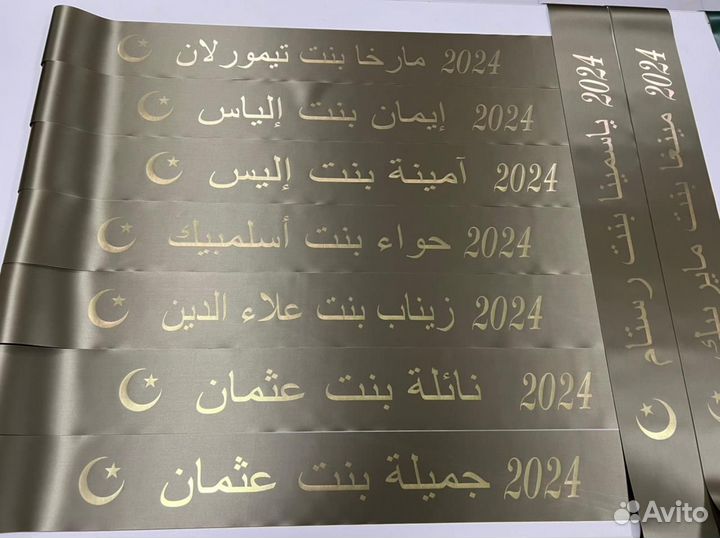 2024 مارخا بنت تيمورلان
2024 إيمان بنت إلياس
2024 آمينة بنت إليس
2024 حواء بنت أسلمبيك
2024 زيناب بنت علاء الدين
2024 نائلة بنت عثمان
2024 جميلة بنت عثمان
2024 ياسمينا بنت رستام
2024 مينغا بنت ماير بيك
Avito